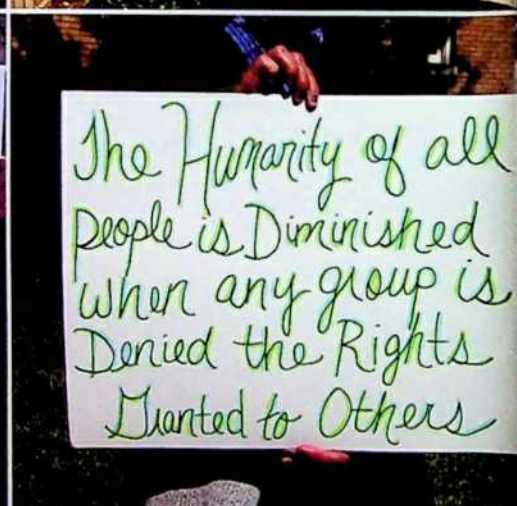 The Humanity of all
People is Diminished
when any group is
Denied the Rights
Granted to Others